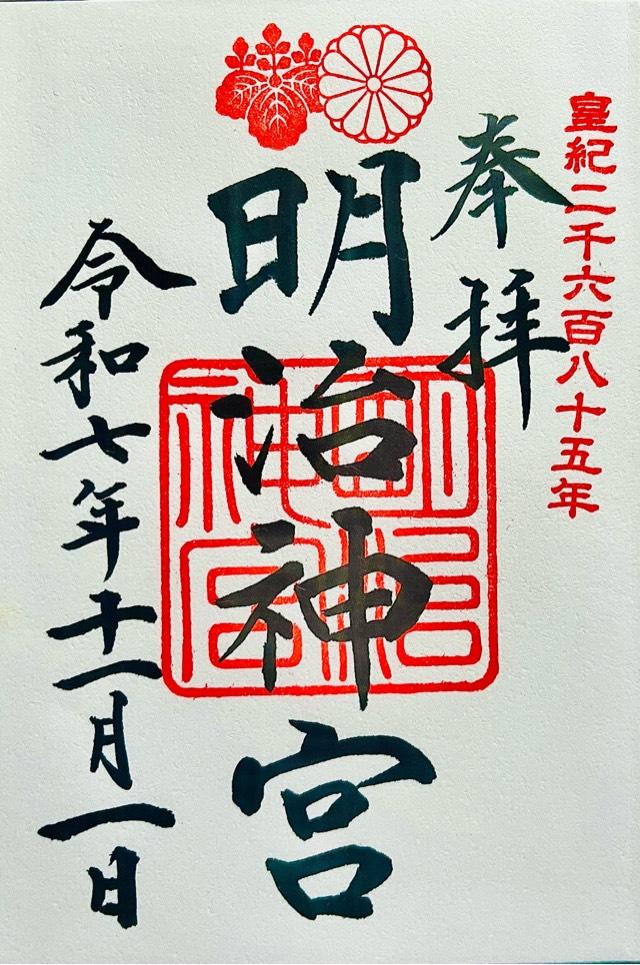 皇紀二千六百八十五年
奉拝
明治神宮
明治神宮
令和七年十一月一日